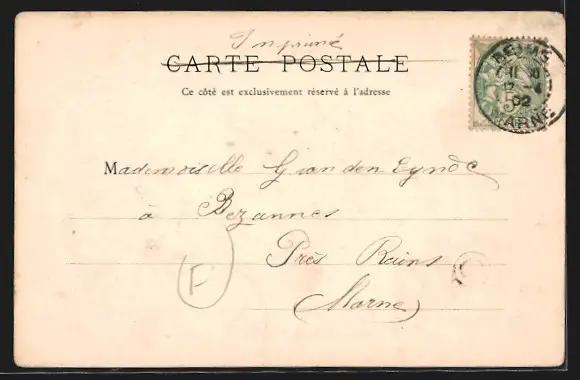 Imprimé
CARTE POSTALE
Ce côté est exclusivement réservé à l'adresse
REIMS
12 - 4
02
MARNE
5
Mademoiselle G van den Eynde
à Bezannes
Près Reims
(Marne)
F